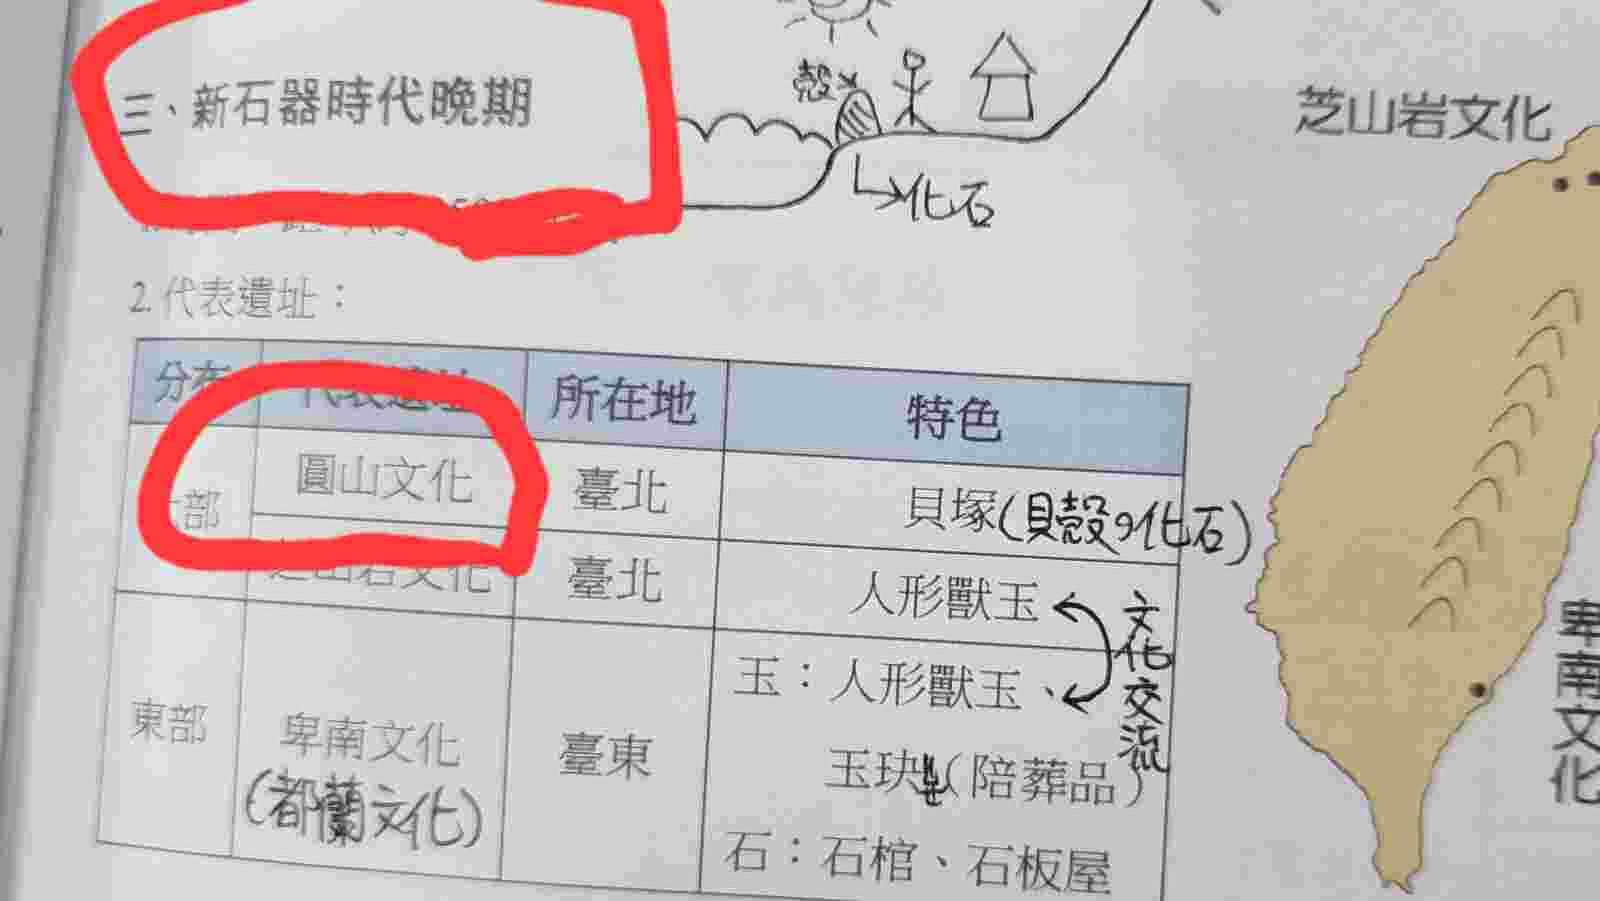 殼
三、新石器時代晚期
芝山岩文化
化石
2.代表遺址：
分布 代表遺址 所在地 特色
部 圓山文化 臺北 貝塚(貝殼の化石)
芝山岩文化 臺北 人形獸玉
文化交流
玉：人形獸玉、
東部 卑南文化 臺東 玉玦(陪葬品)
(都蘭文化)
石：石棺、石板屋
卑南文化